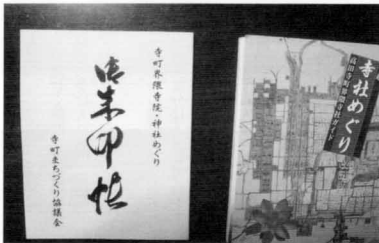 寺町界隈寺院・神社めぐり
御朱印帖
寺町まちづくり協議会
寺社めぐり